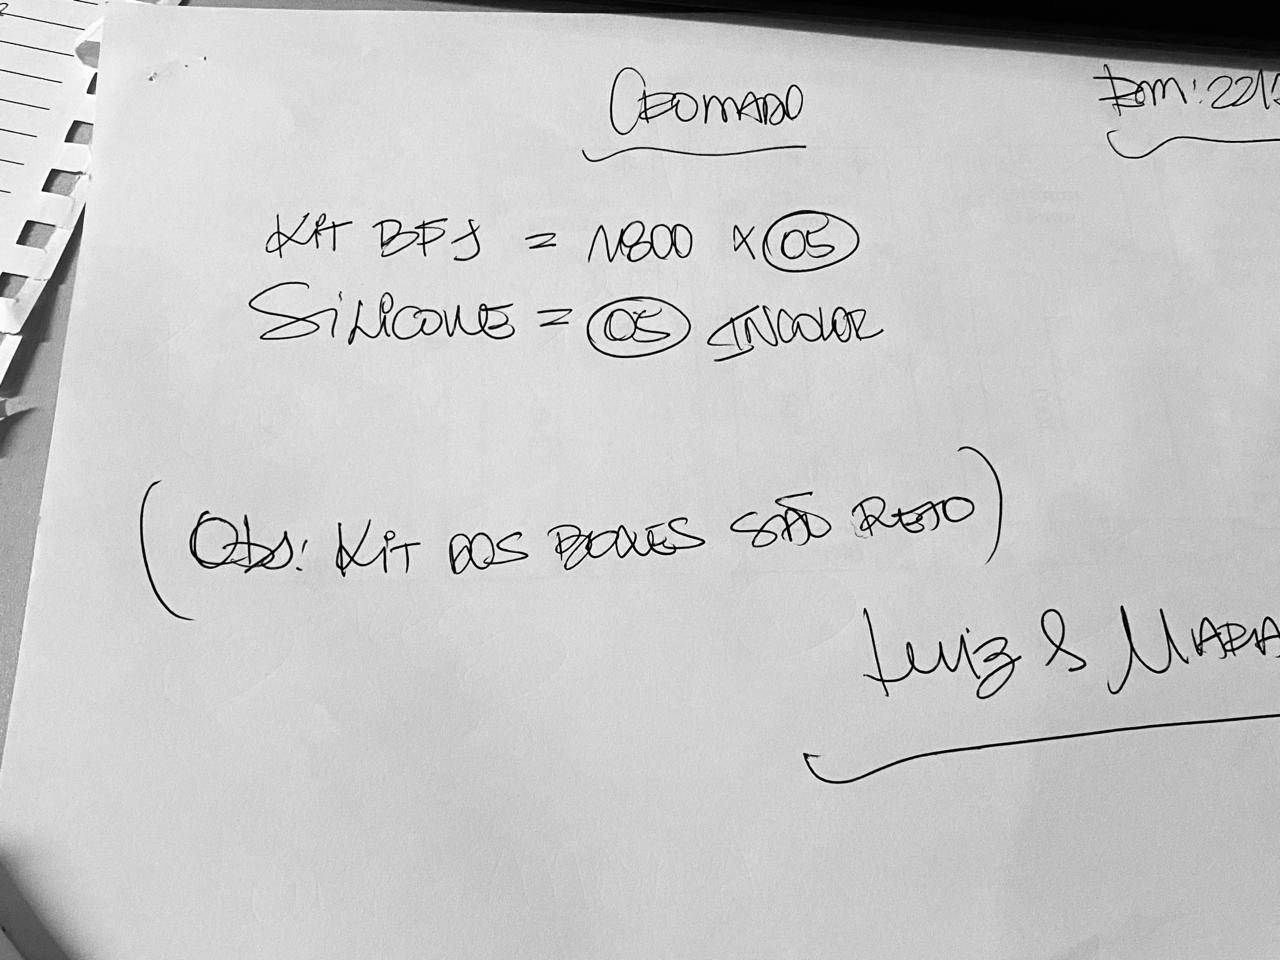 CROMADO
Rom: 221
KIT BF1 = 1800 x 05
SILICONE = 05 INCOLOR
(Obs: KIT DOS BOXES SÃO RETO)
Luiz & MARA